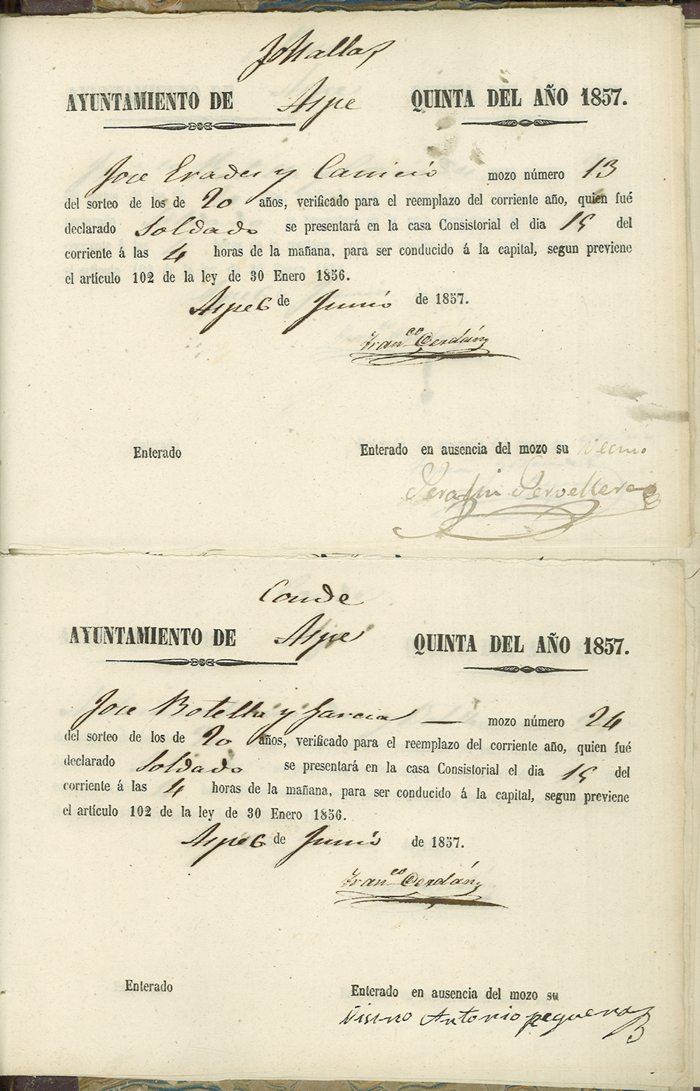 AYUNTAMIENTO DE Aspe QUINTA DEL AÑO 1857.
Jose Erades y mozo número 13
del sorteo de los de 20 años, verificado para el reemplazo del corriente año, quien fué
declarado Soldado se presentará en la casa Consistorial el dia 15 del
corriente á las 4 horas de la mañana, para ser conducido á la capital, segun previene
el artículo 102 de la ley de 30 Enero 1856.
Aspe 6 de Junio de 1857.
Franco Cerdán
Enterado Enterado en ausencia del mozo su Vecino
Serafin
Conde
AYUNTAMIENTO DE Aspe QUINTA DEL AÑO 1857.
Jose Botella y Garcia — mozo número 24
del sorteo de los de 20 años, verificado para el reemplazo del corriente año, quien fué
declarado Soldado se presentará en la casa Consistorial el dia 15 del
corriente á las 4 horas de la mañana, para ser conducido á la capital, segun previene
el artículo 102 de la ley de 30 Enero 1856.
Aspe 6 de Junio de 1857.
Franco Cerdán
Enterado Enterado en ausencia del mozo su
Visino Antonio peguera